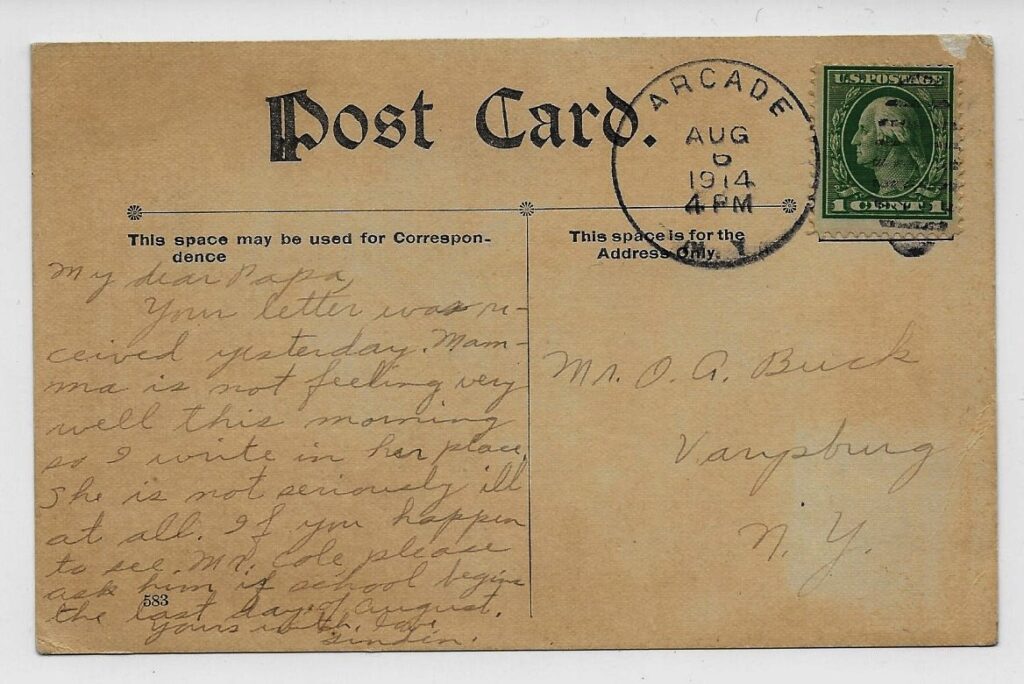 Post Card.
ARCADE
AUG
6
1914
4 PM
N.Y.
U.S. POSTAGE
1 CENT 1
This space may be used for Correspon-
dence
This space is for the
Address only.
My dear Papa,
Your letter was re-
ceived yesterday. Mam-
ma is not feeling very
well this morning
so I write in her place.
She is not seriously ill
at all. If you happen
to see Mr. Cole please
ask him if school begins
the last day of August.
Yours with love
583
Mr. O. A. Buck
Varysburg
N. Y.